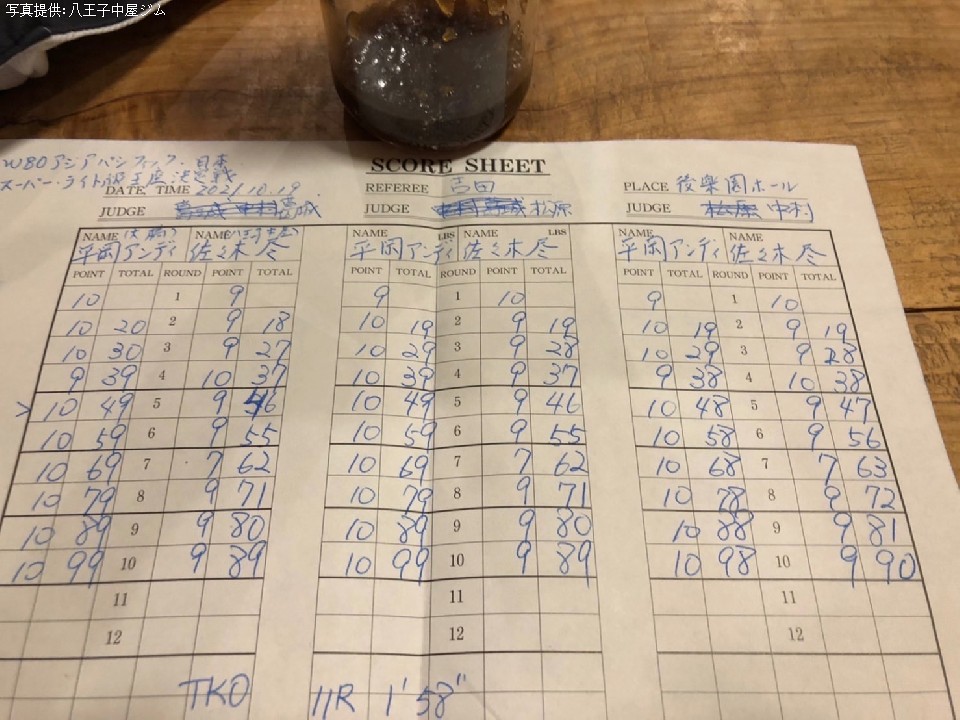 写真提供:八王子中屋ジム
SCORE SHEET
WBOアジアパシフィック・日本
スーパー・ライト級王座決定戦
DATE, TIME 2021.10.19.
REFEREE 吉田
PLACE 後楽園ホール
JUDGE 葛城
JUDGE 松原
JUDGE 中村
NAME (大橋) NAME (八王子中屋) NAME LBS NAME LBS NAME NAME
平岡アンディ 佐々木尽 平岡アンディ 佐々木尽 平岡アンディ 佐々木尽
POINT TOTAL ROUND POINT TOTAL POINT TOTAL ROUND POINT TOTAL POINT TOTAL ROUND POINT TOTAL
10 1 9 9 1 10 9 1 10
10 20 2 9 18 10 19 2 9 19 10 19 2 9 19
10 30 3 9 27 10 29 3 9 28 10 29 3 9 28
9 39 4 10 37 10 39 4 9 37 9 38 4 10 38
> 10 49 5 9 46 10 49 5 9 46 10 48 5 9 47
10 59 6 9 55 10 59 6 9 55 10 58 6 9 56
10 69 7 7 62 10 69 7 7 62 10 68 7 7 63
10 79 8 9 71 10 79 8 9 71 10 78 8 9 72
10 89 9 9 80 10 89 9 9 80 10 88 9 9 81
10 99 10 9 89 10 99 10 9 89 10 98 10 9 90
11 11 11
12 12 12
TKO 11R 1'58"